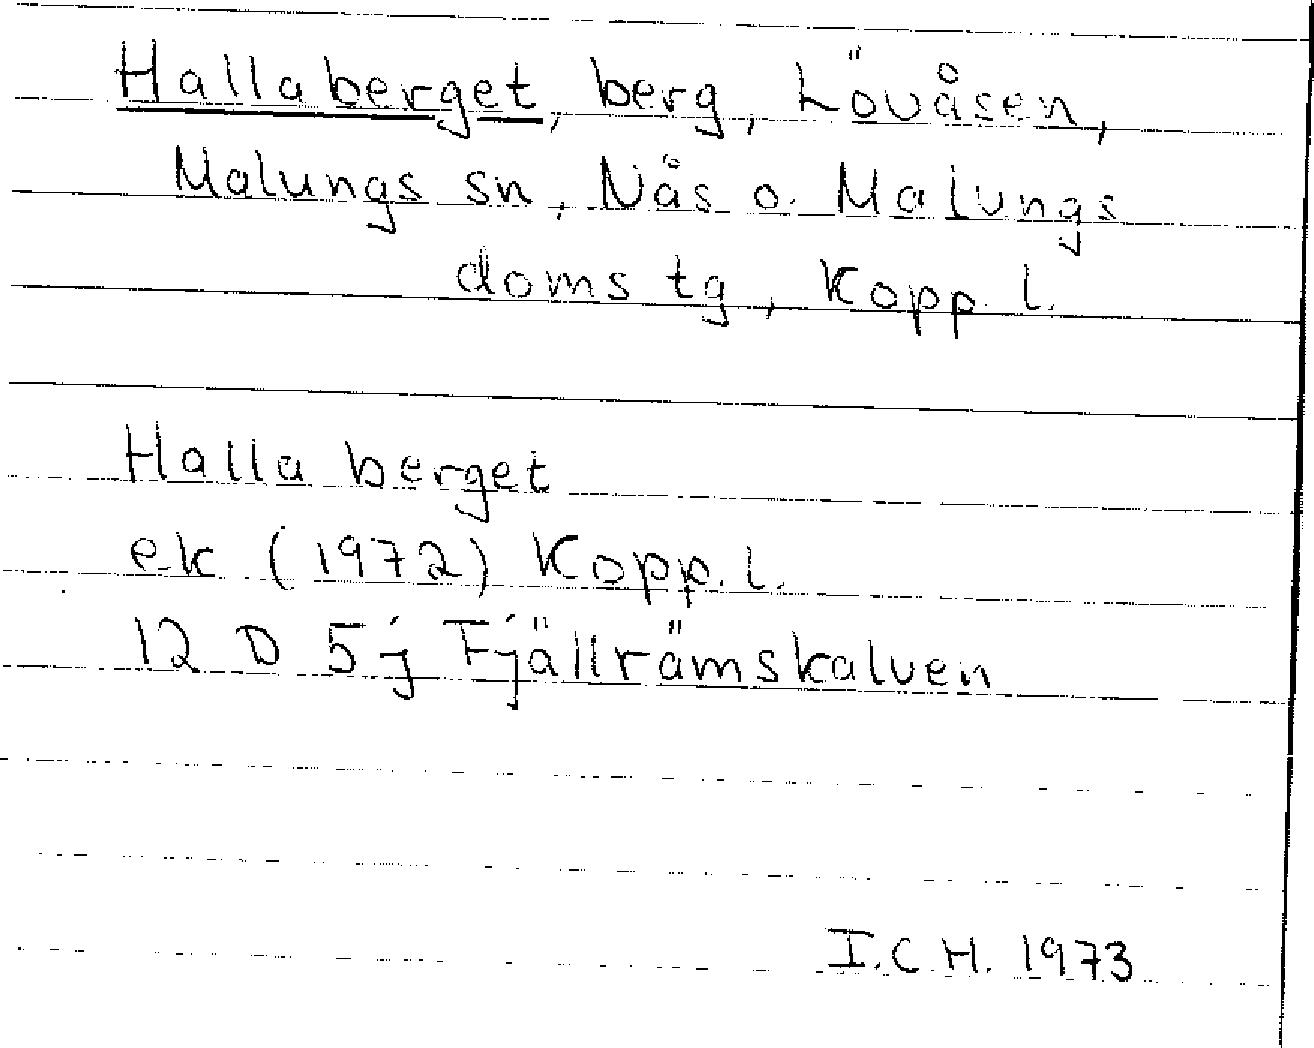 Hallaberget, berg, Lövåsen,
Malungs sn, Nås o. Malungs
doms tg, Kopp. l.
Halla berget
ek (1972) Kopp. l.
12 D 5 j Fjällrämskalven
I.C.H. 1973